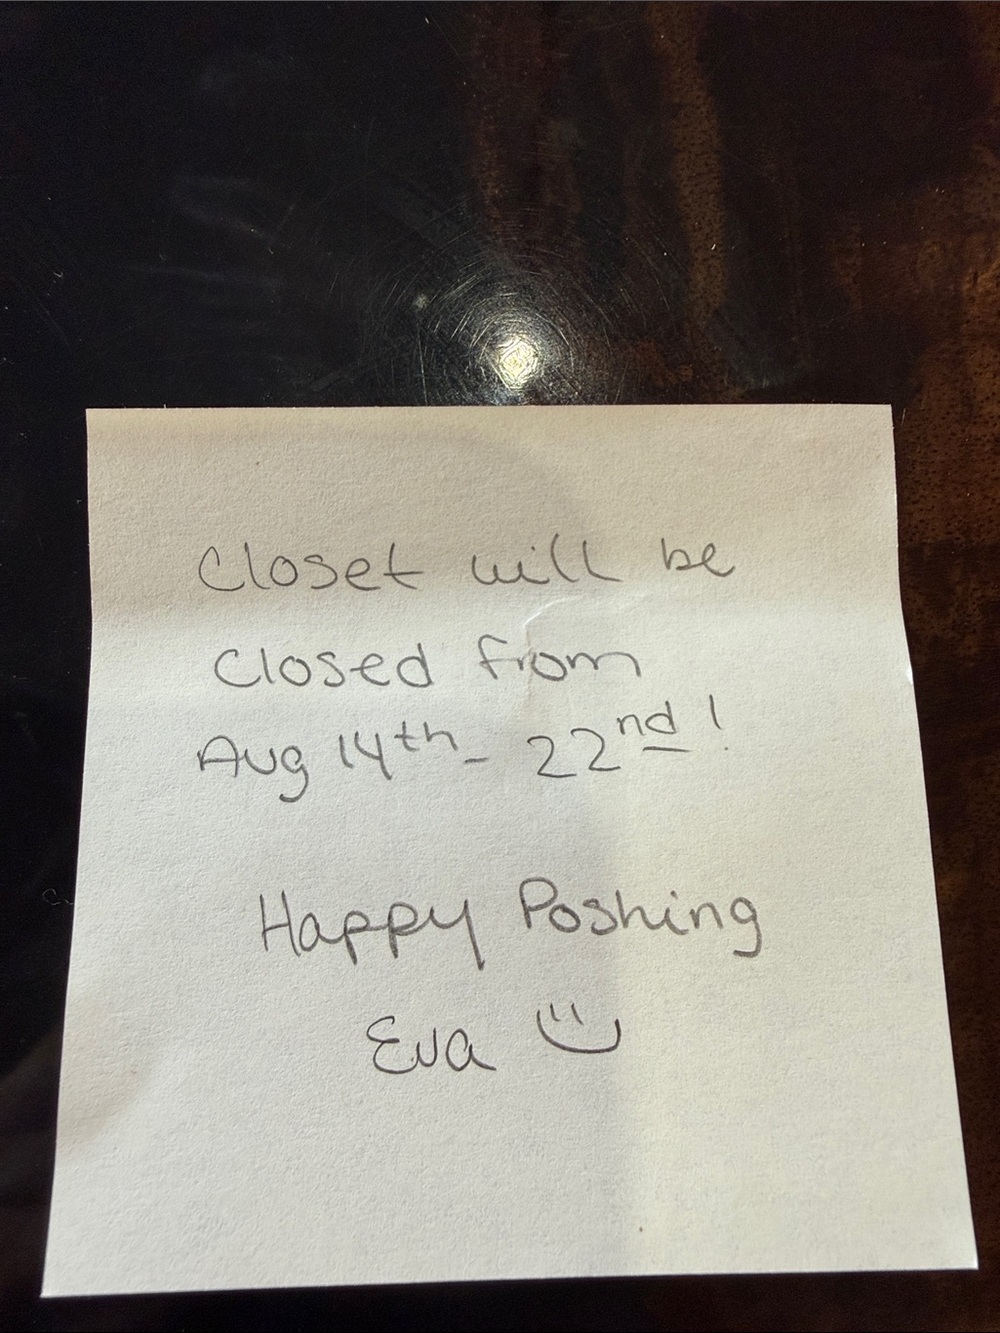 Closet will be
Closed from
Aug 14th - 22nd!
Happy Poshing
Eva